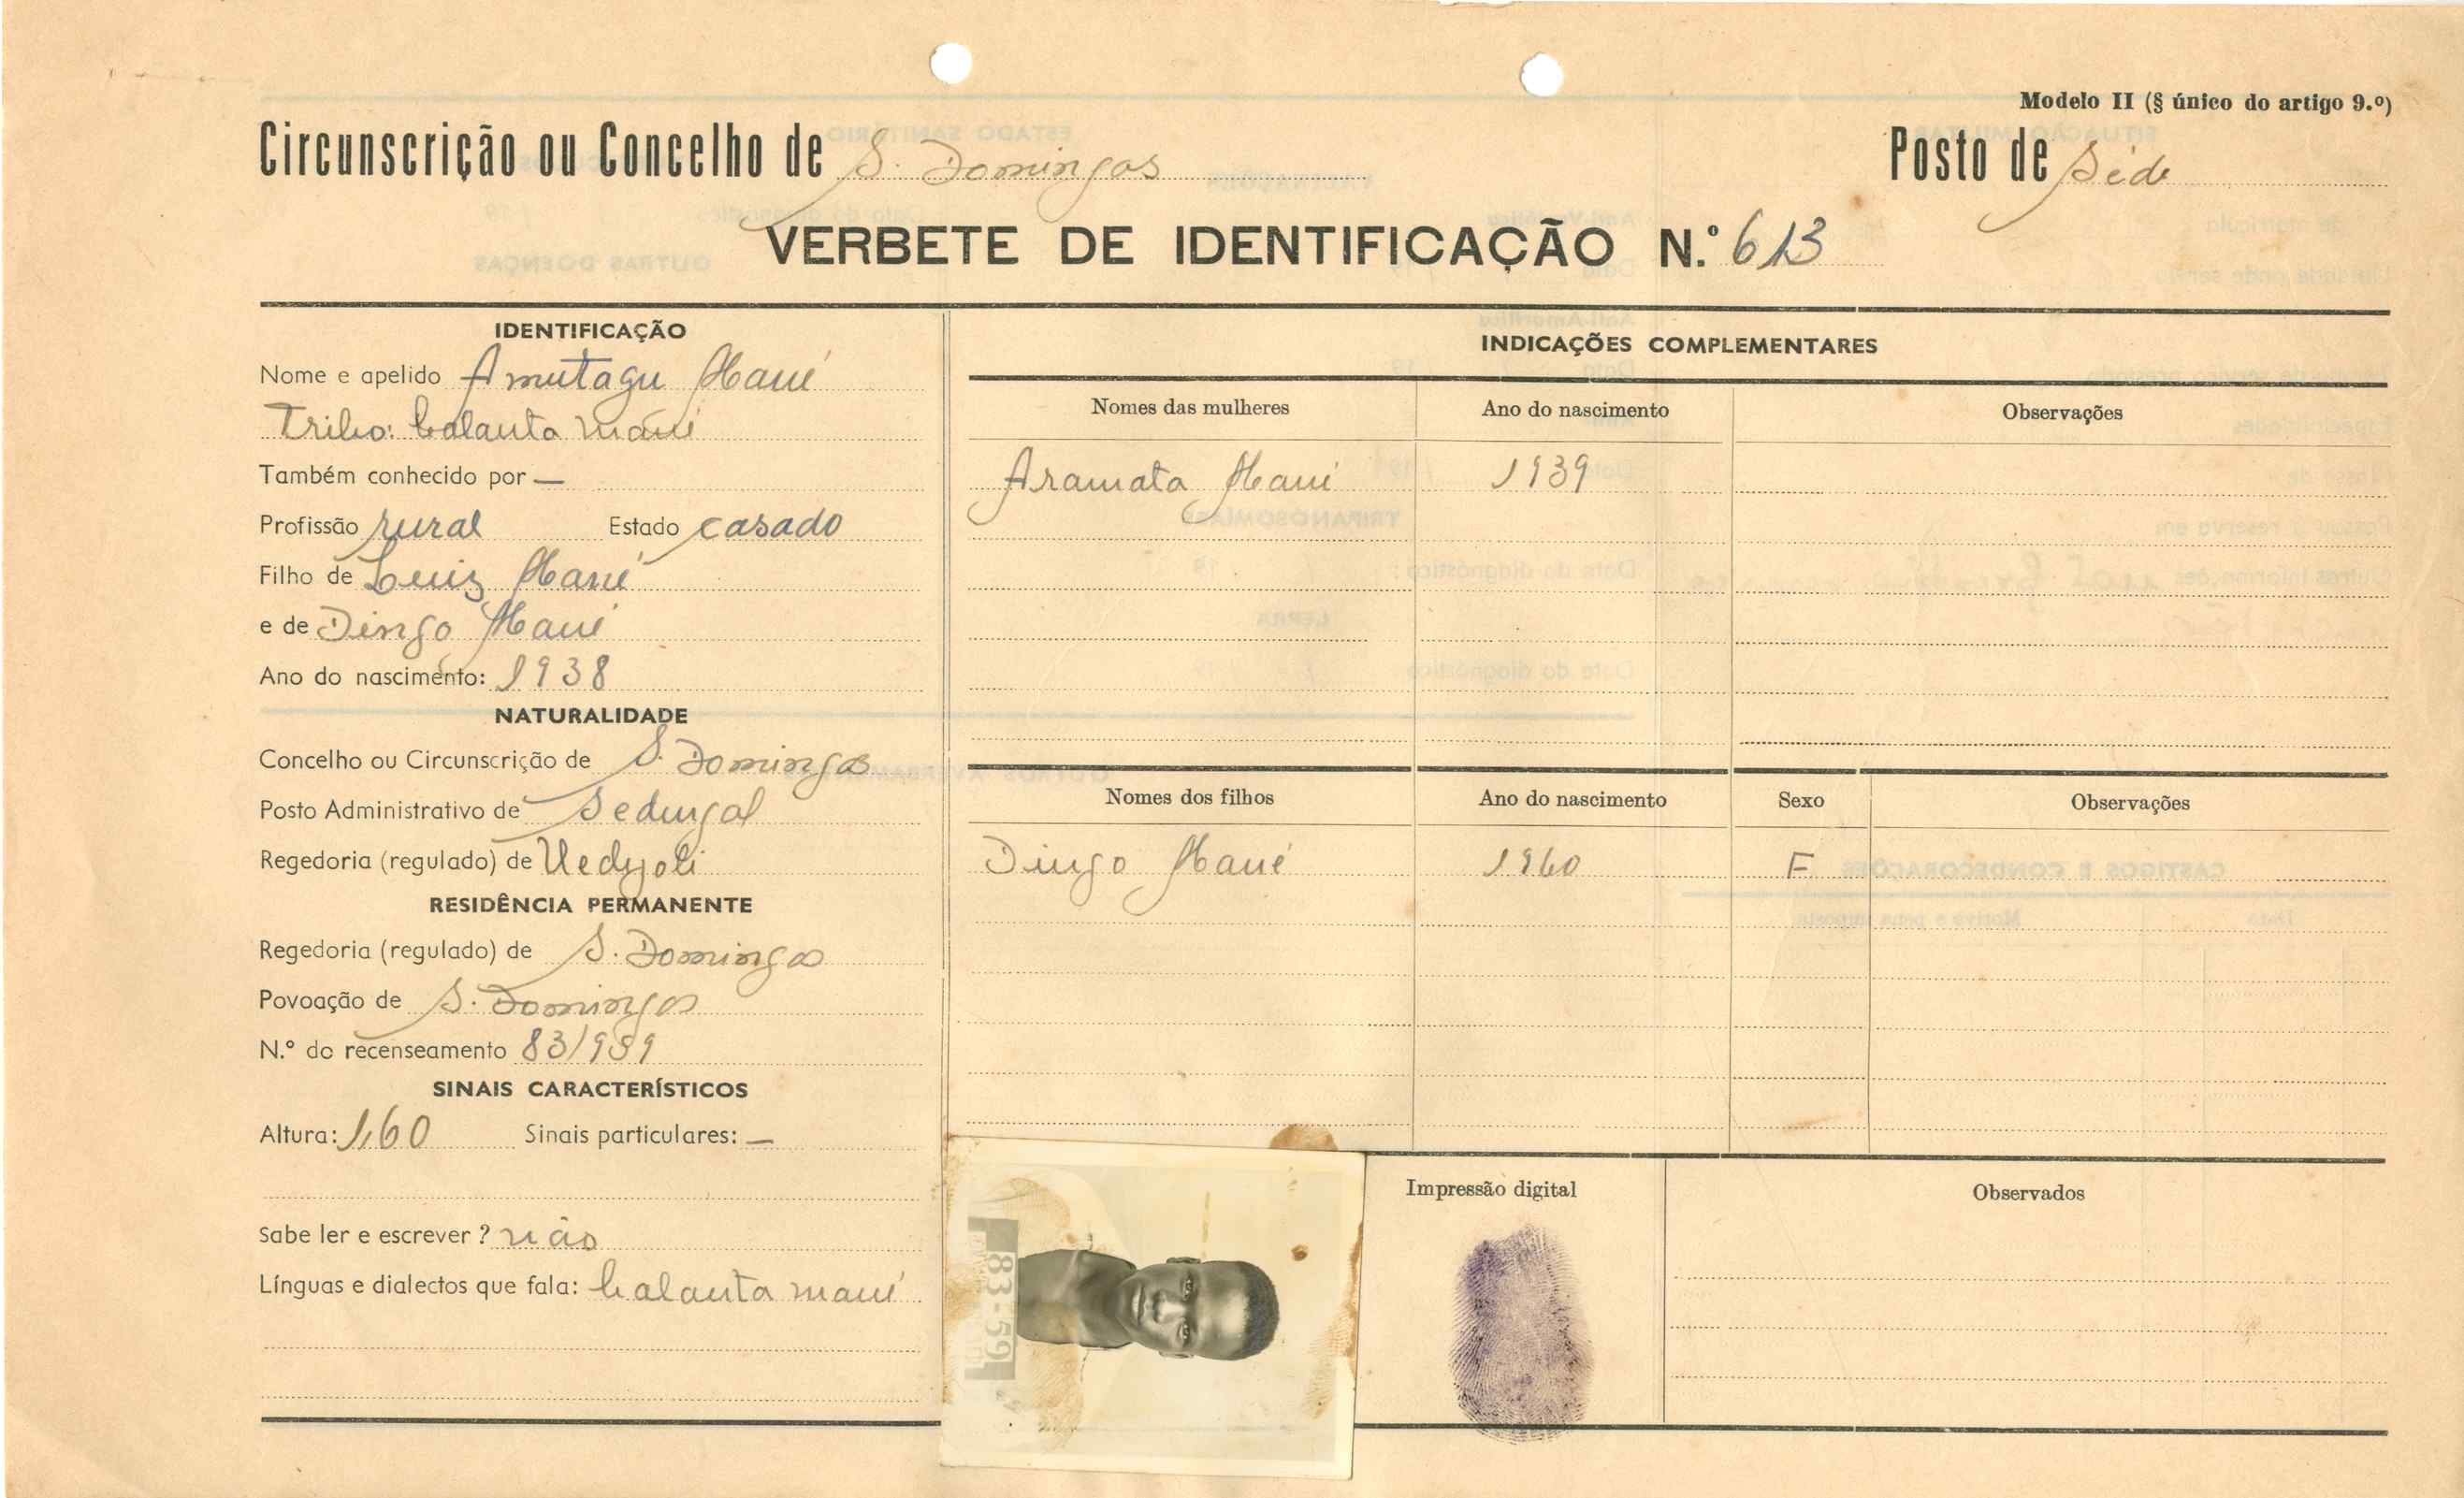 Modelo II (§ único do artigo 9.º)
Circunscrição ou Concelho de S. Domingos
Posto de Séde
VERBETE DE IDENTIFICAÇÃO N.º 613
IDENTIFICAÇÃO
Nome e apelido Amutagu Mané
Tribo: balanta mané
Também conhecido por —
Profissão rural Estado casado
Filho de Luiz Mané
e de Dingo Mané
Ano do nascimento: 1938
NATURALIDADE
Concelho ou Circunscrição de S. Domingos
Posto Administrativo de Sedengal
Regedoria (regulado) de
RESIDÊNCIA PERMANENTE
Regedoria (regulado) de S. Domingos
Povoação de S. Domingos
N.º do recenseamento 83/959
SINAIS CARACTERÍSTICOS
Altura: 1,60 Sinais particulares: —
Sabe ler e escrever? não
Línguas e dialectos que fala: balanta mané
INDICAÇÕES COMPLEMENTARES
Nomes das mulheres Ano do nascimento Observações
Aramata Mané 1939
Nomes dos filhos Ano do nascimento Sexo Observações
Dingo Mané 1960 F
83-59
Impressão digital
Observados